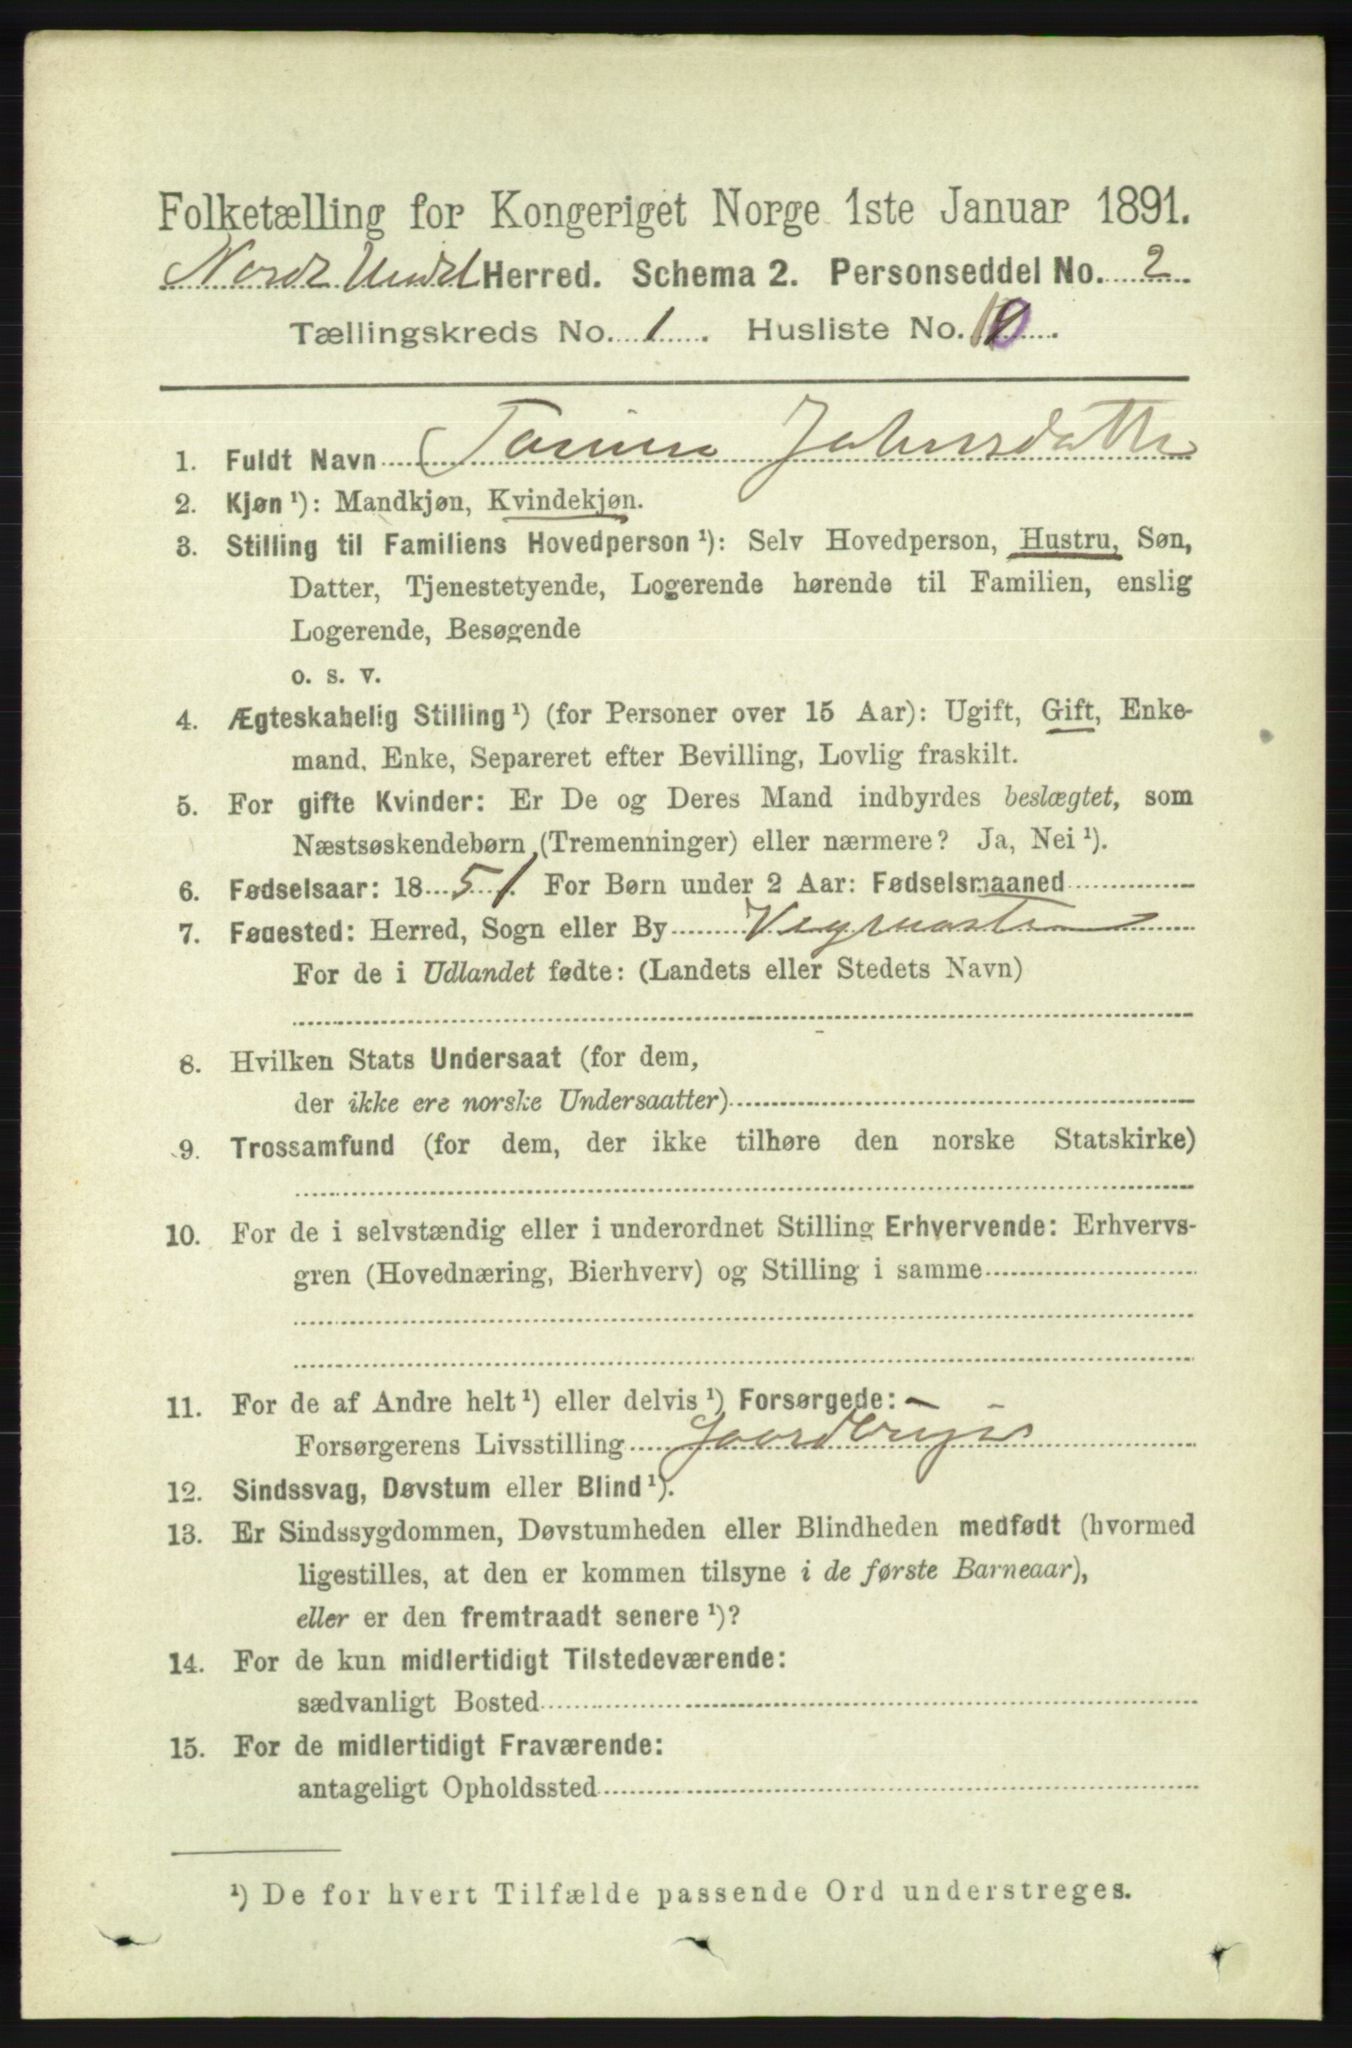 Folketælling for Kongeriget Norge 1ste Januar 1891.
Nord Undal Herred. Schema 2. Personseddel No. 2.
Tællingskreds No. 1. Husliste No. 10.
1. Fuldt Navn Tomine Johnsdatter
2. Kjøn ¹): Mandkjøn, Kvindekjøn.
3. Stilling til Familiens Hovedperson ¹): Selv Hovedperson, Hustru, Søn,
Datter, Tjenestetyende, Logerende hørende til Familien, enslig
Logerende, Besøgende
o. s. v.
4. Ægteskabelig Stilling ¹) (for Personer over 15 Aar): Ugift, Gift, Enke-
mand, Enke, Separeret efter Bevilling, Lovlig fraskilt.
5. For gifte Kvinder: Er De og Deres Mand indbyrdes beslægtet, som
Næstsøskendebørn (Tremenninger) eller nærmere? Ja, Nei ¹).
6. Fødselsaar: 1851. For Børn under 2 Aar: Fødselsmaaned
7. Fødested: Herred, Sogn eller By Vegmostæ
For de i Udlandet fødte: (Landets eller Stedets Navn)
8. Hvilken Stats Undersaat (for dem,
der ikke ere norske Undersaatter)
9. Trossamfund (for dem, der ikke tilhøre den norske Statskirke)
10. For de i selvstændig eller i underordnet Stilling Erhvervende: Erhvervs-
gren (Hovednæring, Bierhverv) og Stilling i samme
11. For de af Andre helt ¹) eller delvis ¹) Forsørgede:
Forsørgerens Livsstilling Gaardbruger
12. Sindssvag, Døvstum eller Blind ¹).
13. Er Sindssygdommen, Døvstumheden eller Blindheden medfødt (hvormed
ligestilles, at den er kommen tilsyne i de første Barneaar),
eller er den fremtraadt senere ¹)?
14. For de kun midlertidigt Tilstedeværende:
sædvanligt Bosted
15. For de midlertidigt Fraværende:
antageligt Opholdssted
¹) De for hvert Tilfælde passende Ord understreges.